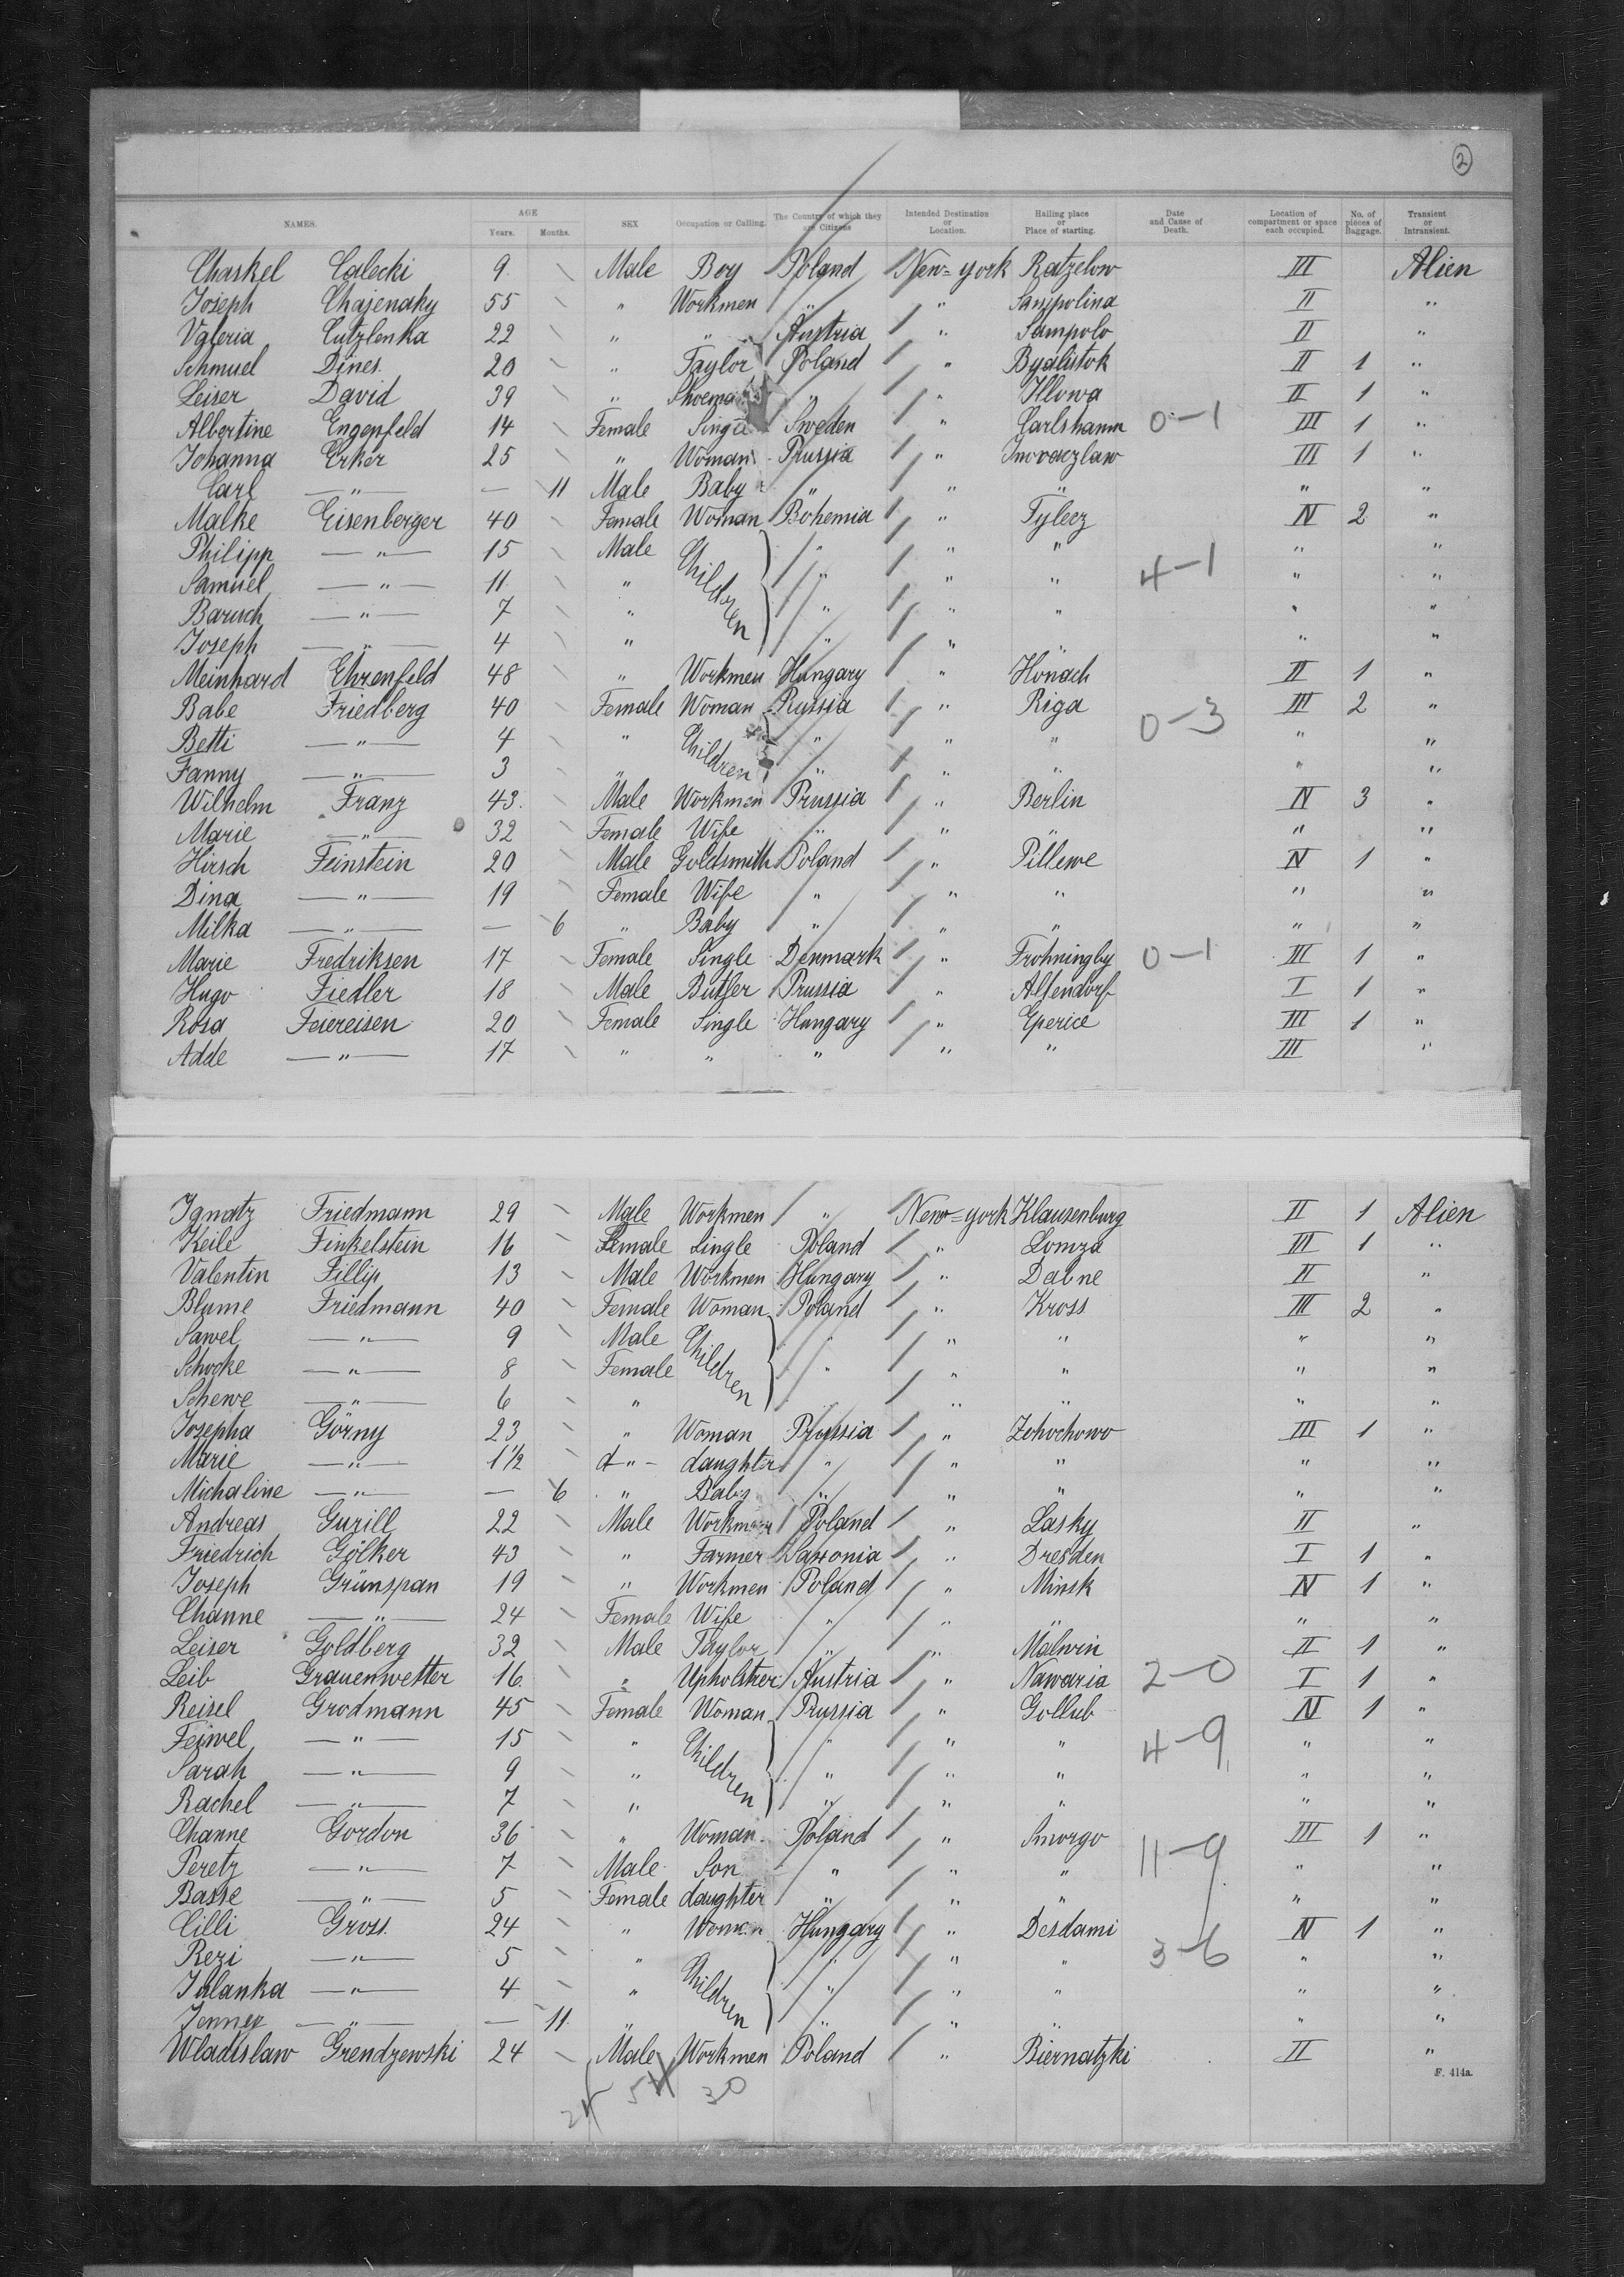 2
NAMES. AGE Years. Months. SEX Occupation or Calling. The Country of which they are Citizens Intended Destination or Location. Hailing place or Place of starting. Date and Cause of Death. Location of compartment or space each occupied. No. of pieces of Baggage. Transient or Intransient.
Chaskel Calecki 9 Male Boy Poland New=york Ratzelow III Alien
Joseph Chajenaky 55 " Workmen " " Sampolina II "
Valeria Cutzlenka 22 " " Austria " Sampolo II "
Schmuel Dines 20 " Taylor Poland " Byalistok II 1 "
Leiser David 39 " " " Illowa II 1 "
Albertine Engenfeld 14 Female Single Sweden " Carlshamn 0-1 III 1 "
Johanna Erker 25 " Woman Prussia " Inovaczlaw III 1 "
Carl " — 11 Male Baby " " " " "
Malke Eisenberger 40 Female Woman Bohemia " Tylecz IV 2 "
Philipp " 15 Male Children " " " " "
Samuel " 11 " " " " 4-1 " "
Baruch " 7 " " " " " "
Joseph " 4 " " " " " "
Meinhard Ehrenfeld 48 " Workmen Hungary " Honach II 1 "
Babe Friedberg 40 Female Woman Russia " Riga III 2 "
Betti " 4 " Children " " " 0-3 " "
Fanny " 3 " " " " " "
Wilhelm Franz 43 Male Workmen Prussia " Berlin IV 3 "
Marie " 32 Female Wife " " " "
Hirsch Feinstein 20 Male Goldsmith Poland " Pillewe IV 1 "
Dina " 19 Female Wife " " " " "
Milka " — 6 " Baby " " " " "
Marie Fredriksen 17 Female Single Denmark " Frohningby 0-1 III 1 "
Hugo Fiedler 18 Male Butler Prussia " Altendorf I 1 "
Rosa Feiereisen 20 Female Single Hungary " Eperice III 1 "
Adde " 17 " " " " " III "
Ignatz Friedmann 29 Male Workmen " New=york Klausenburg II 1 Alien
Keile Finkelstein 16 Female Single Poland " Lomza III 1 "
Valentin Fillip 13 Male Workmen Hungary " Dabne II "
Blume Friedmann 40 Female Woman Poland " Kross III 2 "
Sawel " 9 Male Children " " " " "
Schocke " 8 Female " " " " "
Schewe " 6 " " " " " "
Josepha Görny 23 " Woman Prussia " Zchochowo III 1 "
Marie " 1½ " daughter " " " " "
Michaline " — 6 " Baby " " " " "
Andreas Guzill 22 Male Workmen Poland " Lasky II "
Friedrich Gölker 43 " Farmer Saxonia " Dresden I 1 "
Joseph Grünspan 19 " Workmen Poland " Minsk IV 1 "
Channe " 24 Female Wife " " " "
Leiser Goldberg 32 Male Taylor " " Malwin II 1 "
Leib Grauenwetter 16 " Upholstrer Austria " Nawaria 2-0 I 1 "
Reisel Grodmann 45 Female Woman Prussia " Gollub IV 1 "
Feiwel " 15 " Children " " " 4-9 " "
Sarah " 9 " " " " " "
Rachel " 7 " " " " " "
Channe Gordon 36 " Woman Poland " Smorgo III 1 "
Peretz " 7 Male Son " " " 11-9 " "
Basse " 5 Female daughter " " " " "
Cilli Gross 24 " Woman Hungary " Desdami IV 1 "
Rezi " 5 " Children " " " 3-6 " "
Julanka " 4 " " " " " "
Jenney " — 11 " " " " " "
Wladislaw Grendzewski 24 Male Workmen Poland " Biernatzki II "
F. 414a.
30